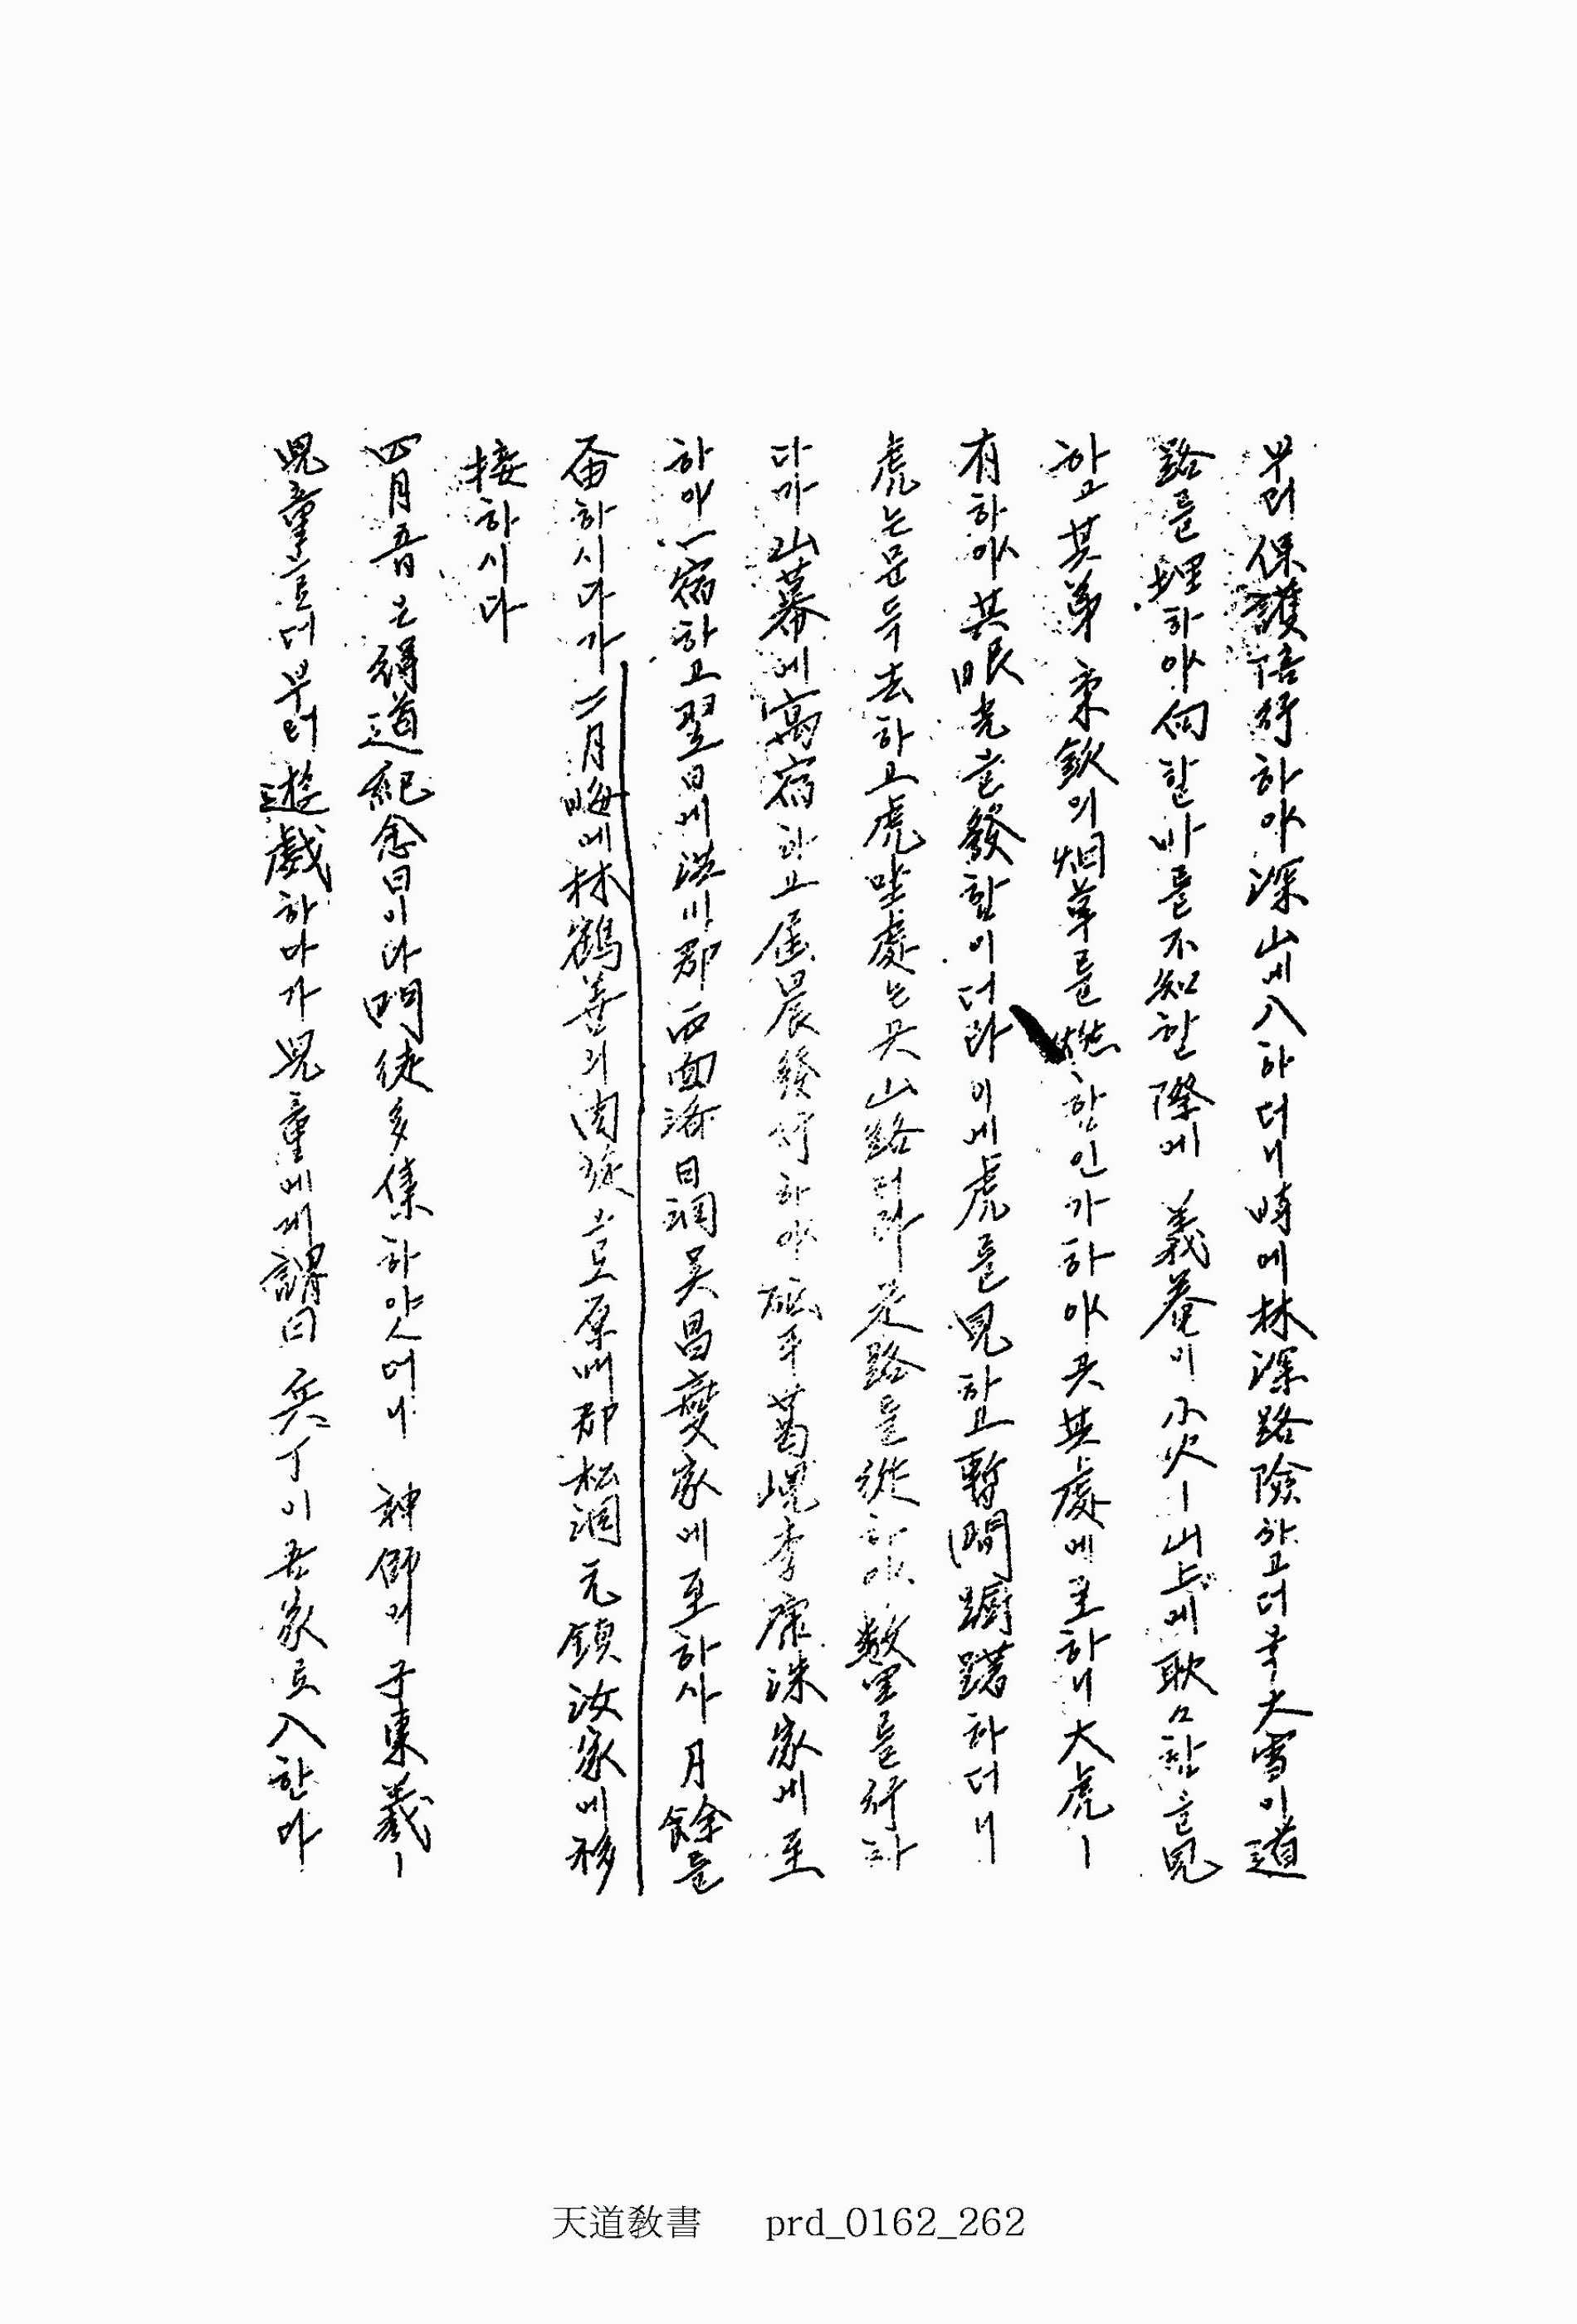 부러 保護倍行하야 深山에 入하더니 時에 林深路險하고 더욱 大雪이 道
路를 埋하야 向할 바를 不知할 際에 義菴이 小火ㅣ 山上에 耿々함을 見
하고 其弟 秉欽의 烟草를 燃함인가 하야 곳 其處에 至하니 大虎ㅣ
有하야 其眼光을 發함이더라 이에 虎를 見하고 暫間 躕躇하더니
虎는 문득 去하고 虎坐處는 곳 山路더라 是路를 從하야 數里를 行하
다가 山幕에 寓宿하고 翌晨 發行하야 砥平 葛峴 李 洙家에 至
하야 一宿하고 翌日에 洪川郡 西面 濟日洞 吳昌燮家에 至하사 月餘를
留하시다가 二月晦에 林鶴善의 周旋으로 原州郡 松洞 元鎭汝家에 移
接하시다
四月五日은 得道紀念日이라 門徒多集하얏더니 神師의 子 東羲ㅣ
兒童으로 더부러 遊戲하다가 兒童에게 謂曰 兵丁이 吾家로 入한다
天道敎書 prd_0162_262